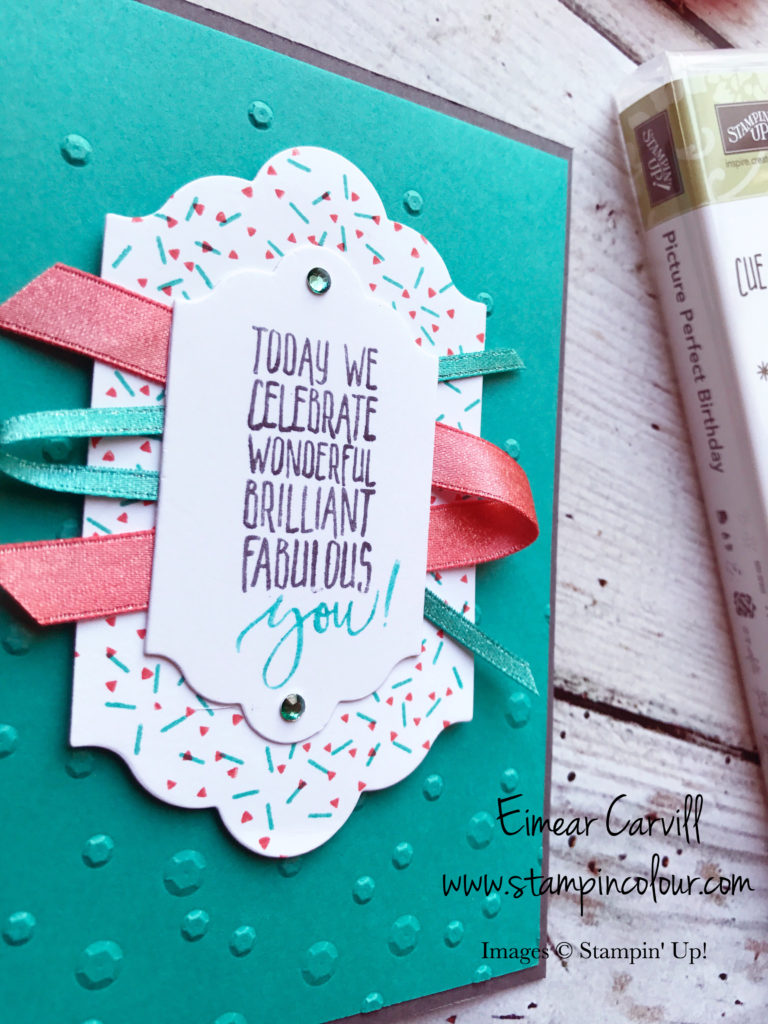 TODAY WE
CELEBRATE
WONDERFUL
BRILLIANT
FABULOUS
you!
STAMPIN'
UP!
STAMPIN'
UP!
inspire.
Picture Perfect Birthday
CUE
Eimear Carvill
www.stampincolour.com
Images © Stampin' Up!